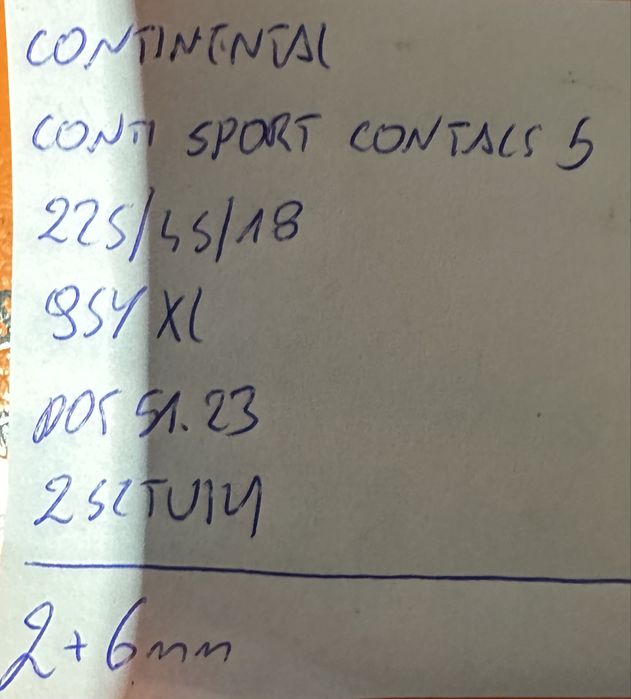 CONTINENTAL
CONTI SPORT CONTACS 5
225/45/18
95Y XL
DOT 51.23
2 SZTUKI
2 + 6mm